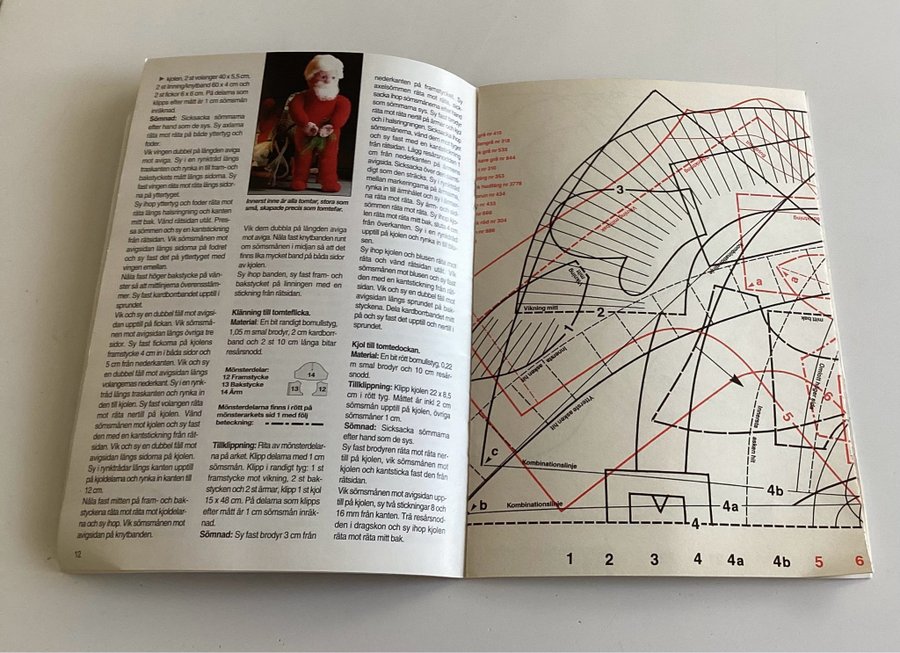 ► kjolen, 2 st volanger 40 x 5,5 cm,
2 st linning/knytband 60 x 4 cm och
2 st fickor 6 x 6 cm. På delarna som
klipps efter mått är 1 cm sömsmån
inräknad.
Sömnad: Sicksacka sömmarna
efter hand som de sys. Sy axlarna
räta mot räta på både yttertyg och
foder.
Vik vingen dubbel på längden aviga
mot aviga. Sy i en rynktråd längs
traskanten och rynka in till fram- och
bakstyckets mått längs sidorna. Sy
fast vingen räta mot räta längs sidor-
na på yttertyget.
Sy ihop yttertyg och foder räta mot
räta längs halsringning och kanten
mitt bak. Vänd rätsidan utåt. Pres-
sa sömmen och sy en kantstickning
från rätsidan. Vik sömsmånen mot
avigsidan längs sidorna på fodret
och sy fast det på yttertyget med
vingen emellan.
Nåla fast höger bakstycke på vän-
ster så att mittlinjerna överensstäm-
mer. Sy fast kardborrbandet upptill i
sprundet.
Vik och sy en dubbel fåll mot avigsi-
dan upptill på fickan. Vik sömsmå-
nen mot avigsidan längs övriga tre
sidor. Sy fast fickorna på kjolens
framstycke 4 cm in i båda sidor och
5 cm från nederkanten. Vik och sy
en dubbel fåll mot avigsidan längs
volangernas nederkant. Sy i en rynk-
tråd längs traskanten och rynka in
den till kjolen. Sy fast volangen räta
mot räta nertill på kjolen. Vänd
sömsmånen mot kjolen och sy fast
den med en kantstickning från rät-
sidan. Vik och sy en dubbel fåll mot
avigsidan längs sidorna på kjolen.
Sy i rynktrådar längs kanten upptill
på kjoldelarna och rynka in kanten till
12 cm.
Nåla fast mitten på fram- och bak-
styckena räta mot räta mot kjoldelar-
na och sy ihop. Vik sömsmånen mot
avigsidan på knytbanden.
12
Innerst inne är alla tomtar, stora som
små, skapade precis som tomtefar.
Vik dem dubbla på längden aviga
mot aviga. Nåla fast knytbanden runt
om sömsmånen i midjan så att det
finns lika mycket band på båda sidor
av kjolen.
Sy ihop banden, sy fast fram- och
bakstycket på linningen med en
stickning från rätsidan.
Klänning till tomteflicka.
Material: En bit randigt bomullstyg,
1,05 m smal brodyr, 2 cm kardborr-
band och 2 st 10 cm långa bitar
resårsnodd.
Mönsterdelar:
12 Framstycke
13 Bakstycke
14 Ärm
14
13
12
Mönsterdelarna finns i rött på
mönsterarkets sid 1 med följ
beteckning:
Tillklippning: Rita av mönsterdelar-
na på arket. Klipp delarna med 1 cm
sömsmån. Klipp i randigt tyg: 1 st
framstycke mot vikning, 2 st bak-
stycken och 2 st ärmar, klipp 1 st kjol
15 x 48 cm. På delarna som klipps
efter mått är 1 cm sömsmån inräk-
nad.
Sömnad: Sy fast brodyr 3 cm från
nederkanten på framstycket. Sy
axelsömmen räta mot räta, sick-
sacka ihop sömsmånerna efter hand
som sömmarna sys. Sy fast brodyr
räta mot räta nertill på ärmar och kjol
och i halsringningen. Sicksacka ihop
sömsmånerna, vänd dem mot tyget
och sy fast med en kantstickning
från rätsidan. Lägg resårsnodden 1
cm från nederkanten på ärmens
avigsida. Sicksacka över den samti-
digt som den sträcks. Sy i rynktråd
mellan markeringarna på ärmarna,
rynka in till ärmhålet och sy i ärmar-
na räta mot räta. Sy ärm- och sid-
sömmen räta mot räta. Sy ihop kjo-
len räta mot räta mitt bak, sluta 4 cm
från överkanten. Sy i en rynktråd
upptill på kjolen och rynka in till blu-
sen.
Sy ihop kjolen och blusen räta mot
räta och vänd rätsidan utåt. Vik
sömsmånen mot blusen och sy fast
den med en kantstickning från rät-
sidan. Vik och sy en dubbel fåll mot
avigsidan längs sprundet på bak-
styckena. Dela kardborrbandet mitt
på och sy fast det upptill och nertill i
sprundet.
Kjol till tomtedockan.
Material: En bit rött bomullstyg, 0,22
m smal brodyr och 10 cm resår-
snodd.
Tillklippning: Klipp kjolen 22 x 8,5
cm i rött tyg. Måttet är inkl 2 cm
sömsmån upptill på kjolen, övriga
sömsmåner 1 cm.
Sömnad: Sicksacka sömmarna
efter hand som de sys.
Sy fast brodyren räta mot räta ner-
till på kjolen, vik sömsmånen mot
kjolen och kantsticka fast den från
rätsidan.
Vik sömsmånen mot avigsidan upp-
till på kjolen, sy två stickningar 8 och
16 mm från kanten. Trä resårsnod-
den i dragskon och sy ihop kjolen
räta mot räta mitt bak.
3
Vikning mitt
2
1
Innersta asken hit
Yttersta asken hit
Kombinationslinje
Kombinationslinje
c
b
a
a
mitt bak
Innersta asken hit
5
6
4b
4a
4
1 2 3 4 4a 4b 5 6